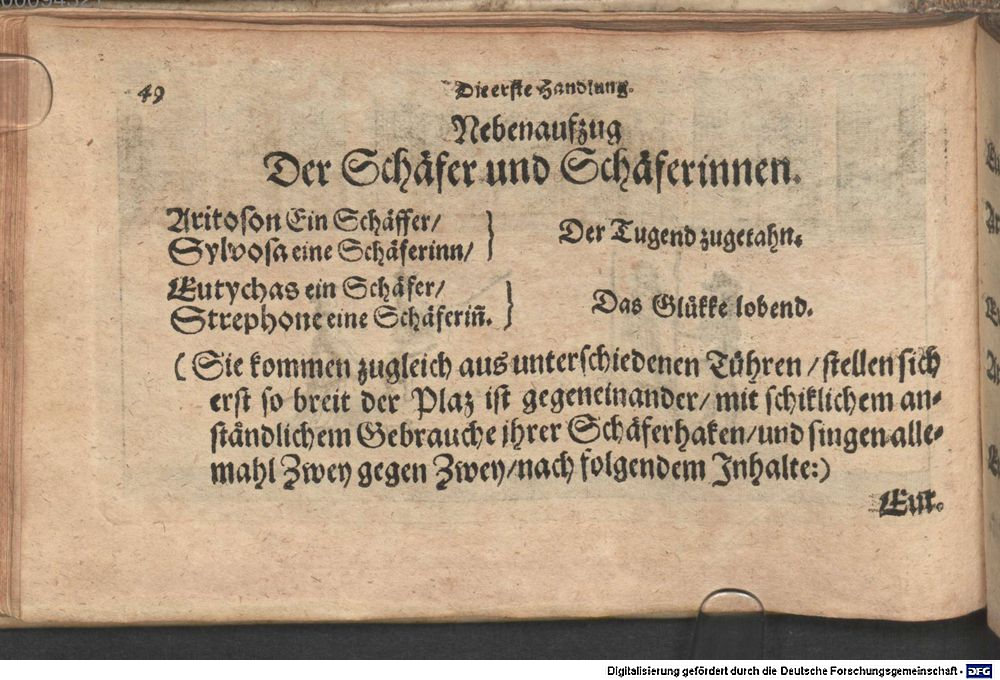 49
Die erste Handlung.
Nebenaufzug
Der Schäfer und Schäferinnen.
Aritoson Ein Schäffer/
Sylvosa eine Schäferinn/
} Der Tugend zugetahn.
Eutychas ein Schäfer/
Strephone eine Schäferiñ.
} Das Glükke lobend.
(Sie kommen zugleich aus unterschiedenen Tühren/stellen sich
erst so breit der Plaz ist gegeneinander/mit schiklichem an-
ständlichem Gebrauche ihrer Schäferhaken/und singen alle-
mahl Zwey gegen Zwey/nach folgendem Inhalte:)
Eut.
Digitalisierung gefördert durch die Deutsche Forschungsgemeinschaft - DFG